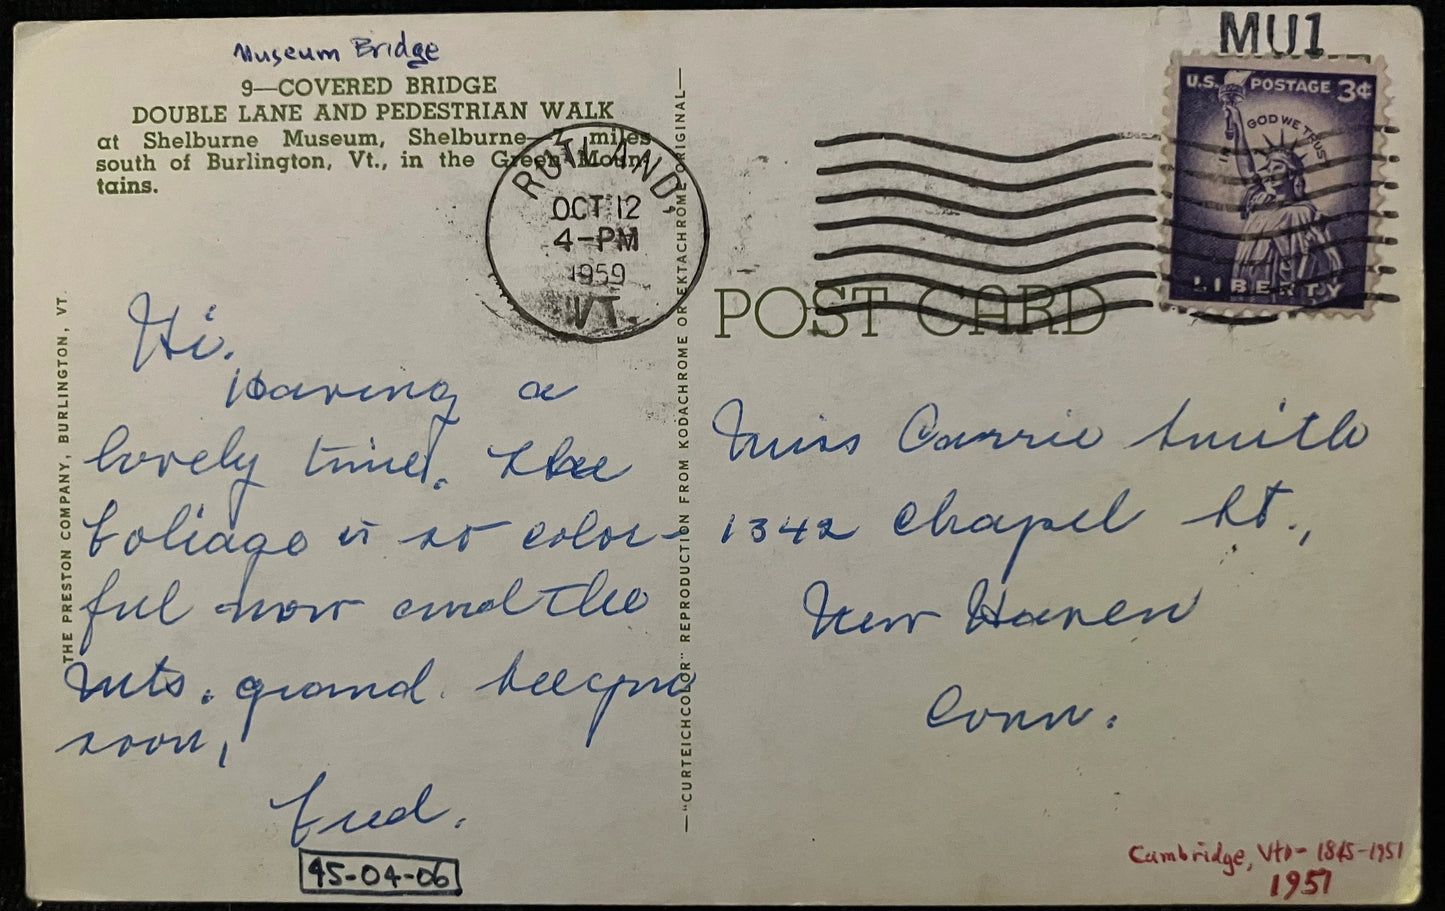 Museum Bridge
9—COVERED BRIDGE
DOUBLE LANE AND PEDESTRIAN WALK
at Shelburne Museum, Shelburne—7 miles
south of Burlington, Vt., in the Green Moun-
tains.
RUTLAND,
OCT 12
4-PM
1959
VT.
MU1
U.S. POSTAGE 3¢
IN GOD WE TRUST
LIBERTY
POST CARD
THE PRESTON COMPANY, BURLINGTON, VT.
Hi.
Having a
lovely time. The
foliage is so color-
ful now and the
mts. grand. See you
soon,
Fred.
45-04-06
—"CURTEICHCOLOR" REPRODUCTION FROM KODACHROME OR EKTACHROME ORIGINAL—
Miss Carrie Smith
1342 Chapel St.,
New Haven
Conn.
Cambridge, Vt - 1845-1951
1951